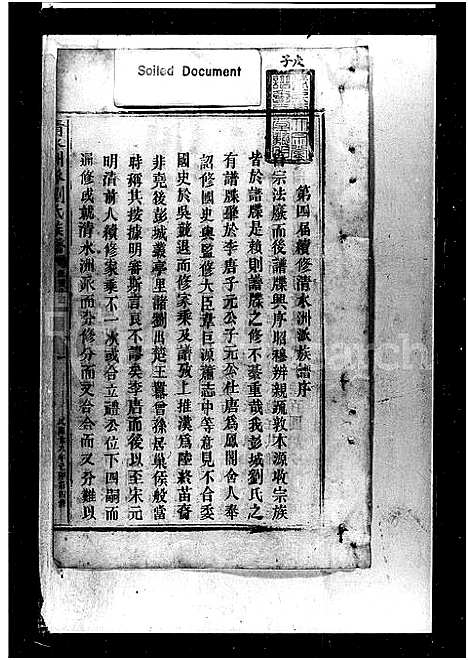 Soiled Document
第四屆續修清水洲派族譜序
自宗法廢而後譜牒興序昭穆辨親疏敦本源收宗族
皆於譜牒是賴則譜牒之修不綦重哉我彭城劉氏之
有譜牒肇於李唐子元公子元公仕唐為鳳閣舍人奉
詔修國史與監修大臣韋巨源蕭志中等意見不合委
國史於吳兢退而修家乘及譜考上推漢為陸終苗裔
非堯後彭城叢亭里諸劉出楚王囂曾孫居巢侯般當
時稱其按據明審斯言良不謬矣李唐而後以至宋元
明清前人續修家乘不一次或合立禮公位下四嗣而
漏修或就清水洲派而分修分而又合合而又分難以